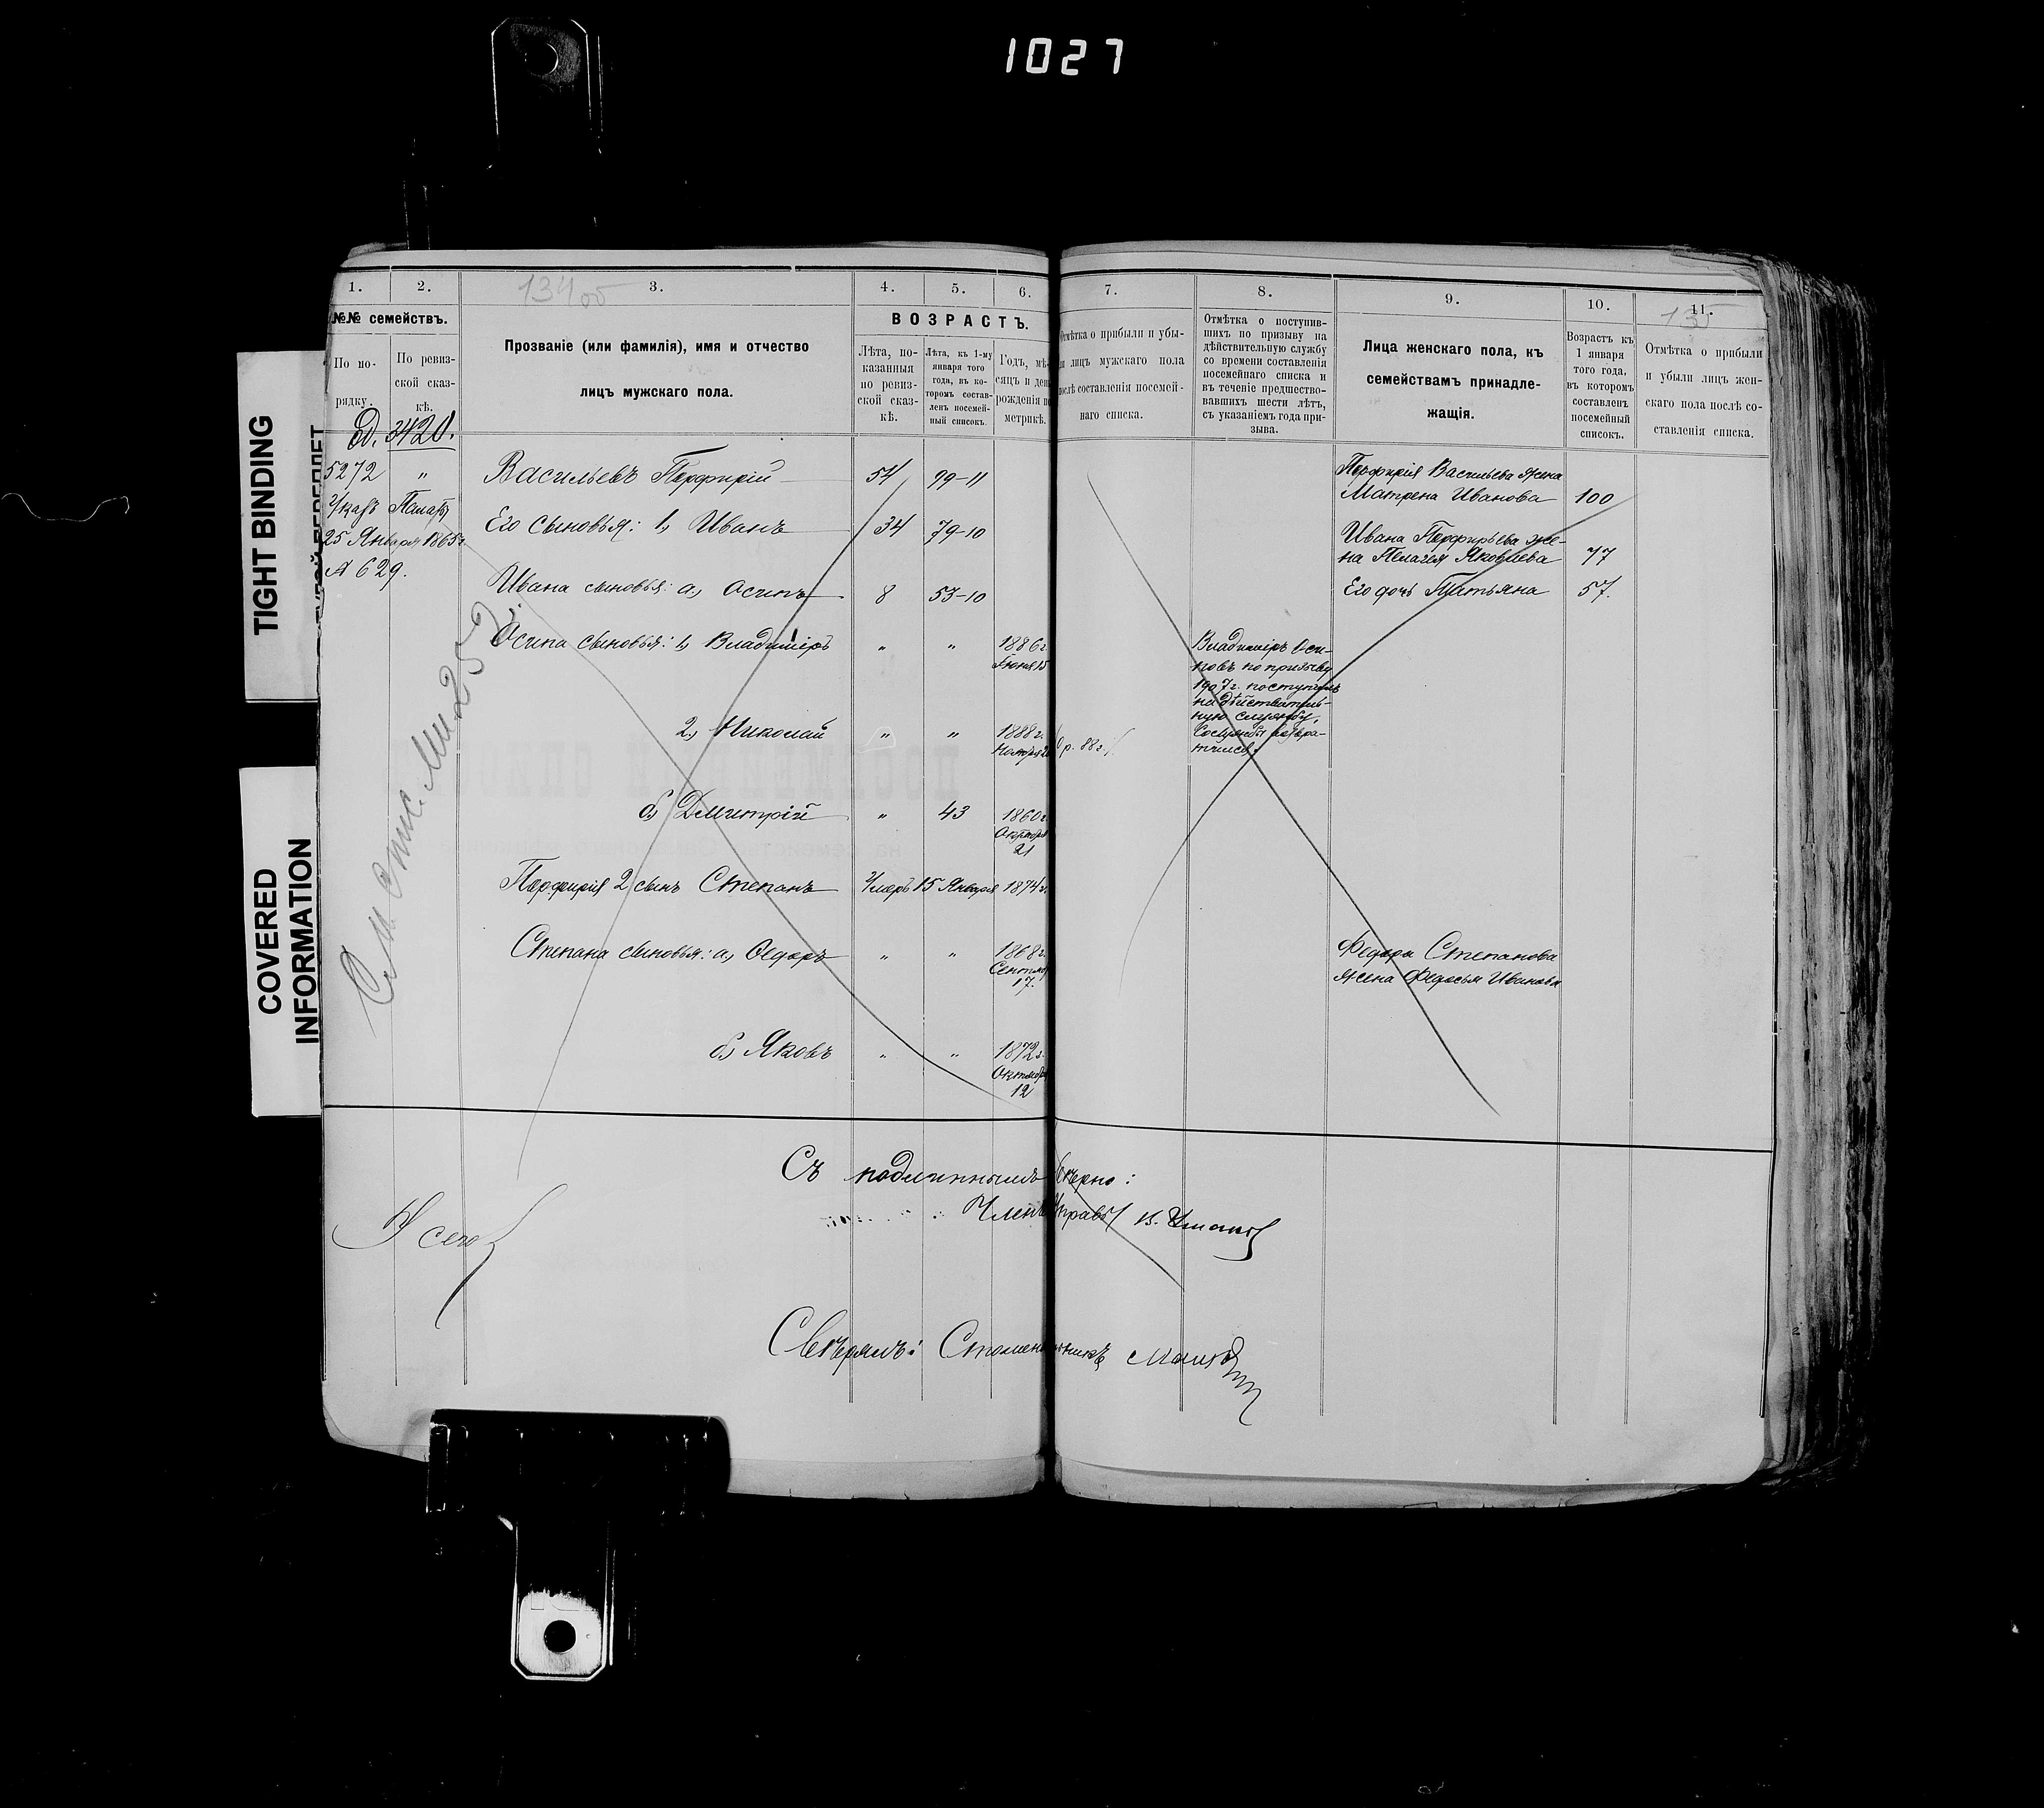 1027
TIGHT BINDING
COVERED
INFORMATION
134 об
135
1.
2.
3.
4.
5.
6.
7.
8.
9.
10.
11.
№№ семействъ.
По по-
рядку.
По ревиз-
ской сказ-
кѣ.
Прозваніе (или фамилія), имя и отчество
лицъ мужскаго пола.
ВОЗРАСТЪ.
Лѣта, по-
казанныя
по ревиз-
ской сказ-
кѣ.
Лѣта, къ 1-му
января того
года, въ ко-
торомъ состав-
ленъ посемей-
ный списокъ.
Годъ, мѣ-
сяцъ и день
рожденія по
метрикѣ.
Отмѣтка о прибыли и убы-
ли лицъ мужскаго пола
послѣ составленія посемей-
наго списка.
Отмѣтка о поступив-
шихъ по призыву на
дѣйствительную службу
со времени составленія
посемейнаго списка и
въ теченіе предшество-
вавшихъ шести лѣтъ,
съ указаніемъ года при-
зыва.
Лица женскаго пола, къ
семействамъ принадле-
жащія.
Возрастъ къ
1 января
того года,
въ которомъ
составленъ
посемейный
списокъ.
Отмѣтка о прибыли
и убыли лицъ жен-
скаго пола послѣ со-
ставленія списка.
Ед. 3420.
5272 " Васильевъ Порфирій 54 99-11
Порфирія Васильева жена
Матрена Иванова 100
Указъ Палаты
25 Января 1865 г.
№ 629.
Его сыновья: 1, Иванъ 34 79-10
Ивана Порфирьева же-
на Пелагея Яковлева 77
Ивана сыновья: а, Осипъ 8 53-10
Его дочь Татьяна 57.
Осипа сыновья: 1, Владиміръ " " 1886 г.
Іюня 15
Владиміръ Оси-
повъ по призыву
1907 г. поступилъ
на дѣйствитель-
ную службу,
2, Николай " " 1888 г.
Ноября
р. 88 г.
б, Дмитрій " 43 1860 г.
Октября
21
Порфирія 2 сынъ Степанъ Умеръ 15 Января 1874 г.
Степана сыновья: а, Ѳедоръ " " 1868 г.
Сентяб
17.
Федора Степанова
жена Федосья Иванова
б, Яковъ " " 1872 г.
Октября
12
Съ подлиннымъ вѣрно:
Членъ Управы
Свѣрялъ: Столоначальникъ